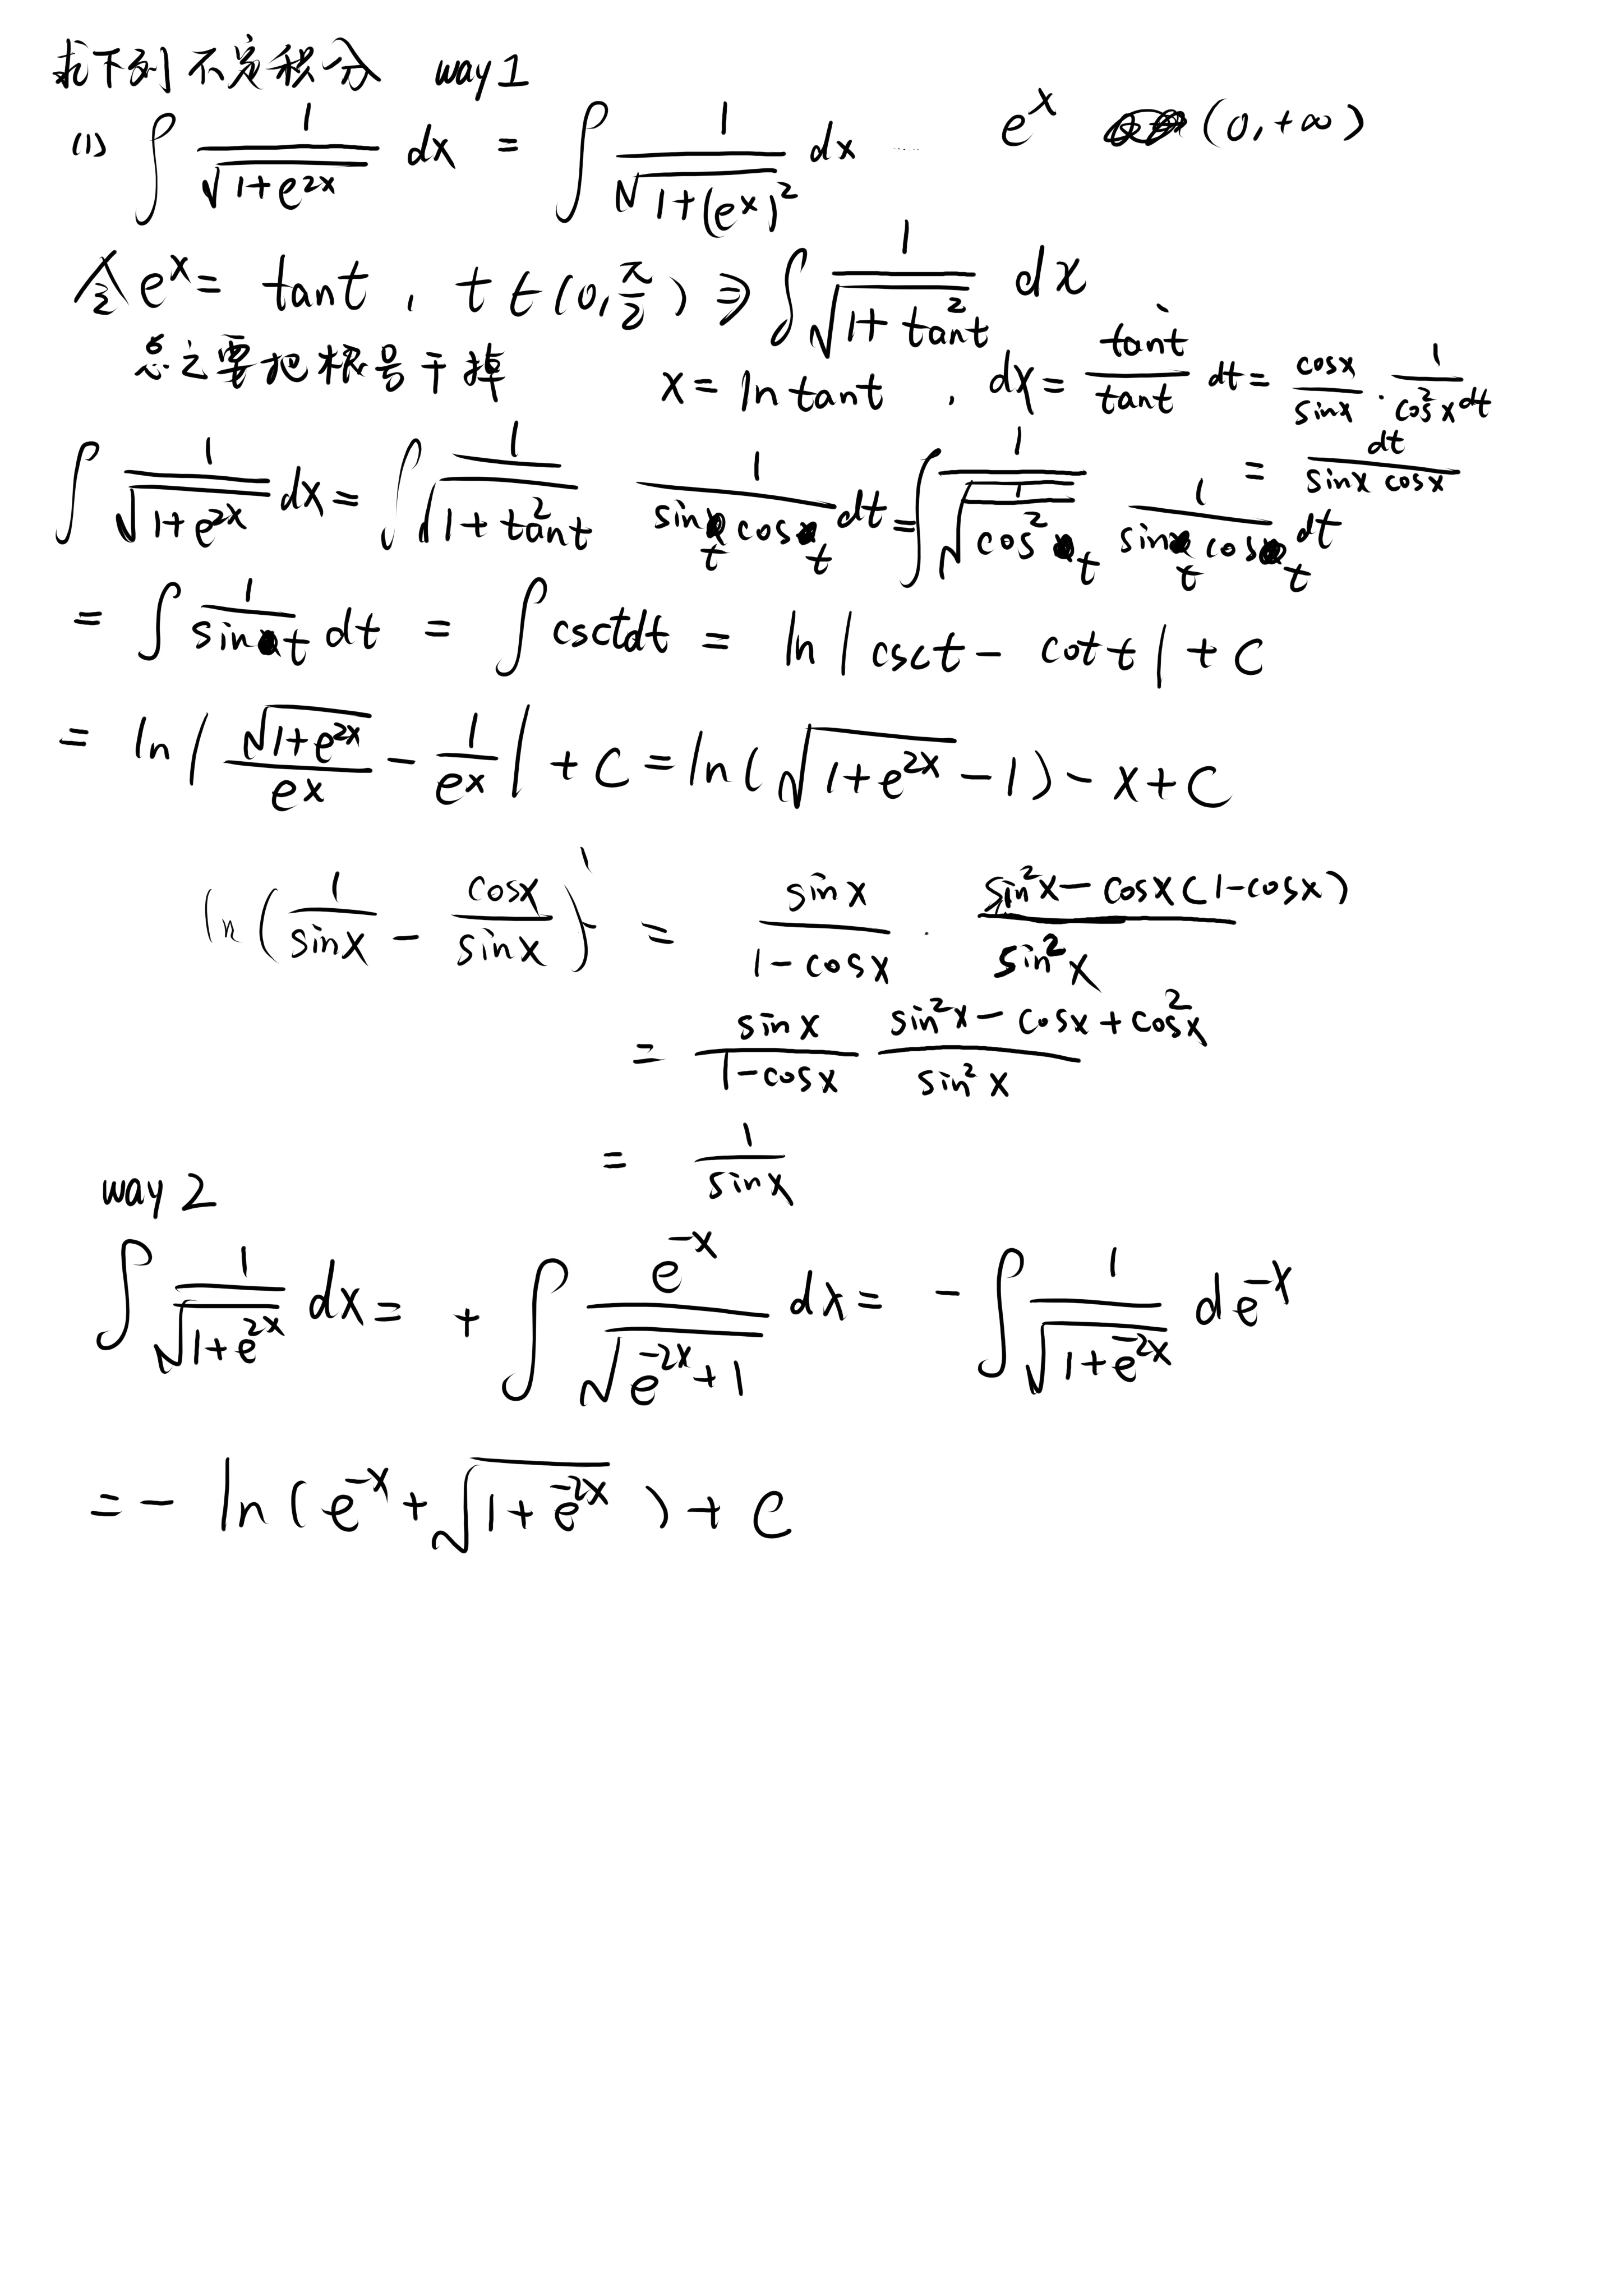 求下列不定积分 way1
(1) ∫ 1/√(1+e^{2x}) dx = ∫ 1/√(1+(e^x)^2) dx e^x (0,+∞)
令 e^x = tant , t∈(0,π/2) ⇒ ∫ 1/√(1+tan²t) dx
总之要把根号干掉 x = ln tant , dx = tan't/tant dt = cosx/sinx · 1/cos²x dt
= dt/(sinx cosx)
∫ 1/√(1+e^{2x}) dx = ∫ 1/√(1+tan²t) 1/(sint cost) dt = ∫ 1/√(1/cos²t) 1/(sint cost) dt
= ∫ 1/sint dt = ∫ csctdt = ln|csct - cott| + C
= ln|√(1+e^{2x})/e^x - 1/e^x| + C = ln(√(1+e^{2x}) - 1) - x + C
ln(1/sinx - cosx/sinx)' = sinx/(1-cosx) · (sin²x - cosx(1-cosx))/sin²x
= sinx/(1-cosx) (sin²x - cosx + cos²x)/sin²x
= 1/sinx
way 2
∫ 1/√(1+e^{2x}) dx = + ∫ e^{-x}/√(e^{-2x}+1) dx = - ∫ 1/√(1+e^{-2x}) de^{-x}
= - ln(e^{-x} + √(1+e^{-2x})) + C